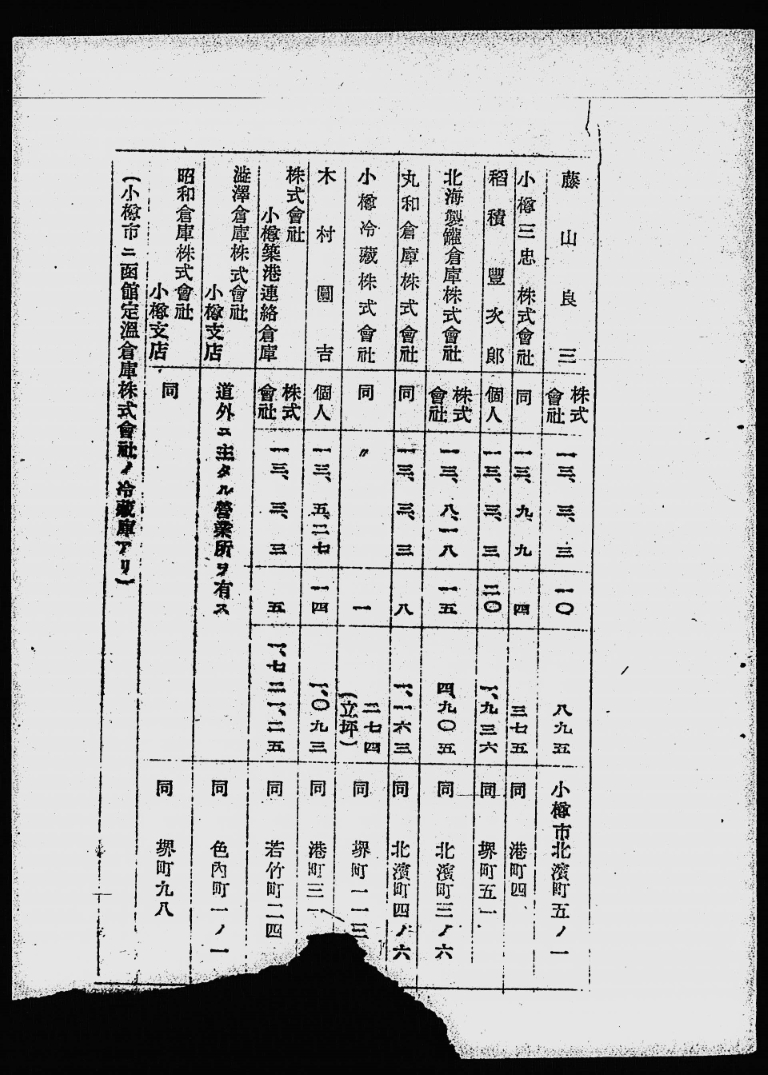 藤山良三 株式會社 一三、三、三 一〇 八九五 小樽市北濱町五ノ一
小樽三忠株式會社 同 一三、九、九 四 三七五 同 港町四
稻積豐次郎 個人 一三、三、三 二〇 一、九三六 同 堺町五一
北海製罐倉庫株式會社 株式會社 一三、八、一八 一五 四、九〇五 同 北濱町三ノ六
丸和倉庫株式會社 同 一三、三、三 八 一、一六三 同 北濱町四ノ六
小樽冷藏株式會社 同 〃 一 二七四(立坪) 同 堺町一一三
木村圓吉 個人 一三、五、二七 一四 一、〇九三 同 港町三一
株式會社小樽築港連絡倉庫 株式會社 一三、三、三 五 一、七二一、二五 同 若竹町二四
澁澤倉庫株式會社小樽支店 道外ニ主タル營業所ヲ有ス 同 色內町一ノ一
昭和倉庫株式會社小樽支店 同 同 堺町九八
(小樽市ニ函館定溫倉庫株式會社ノ冷藏庫アリ)